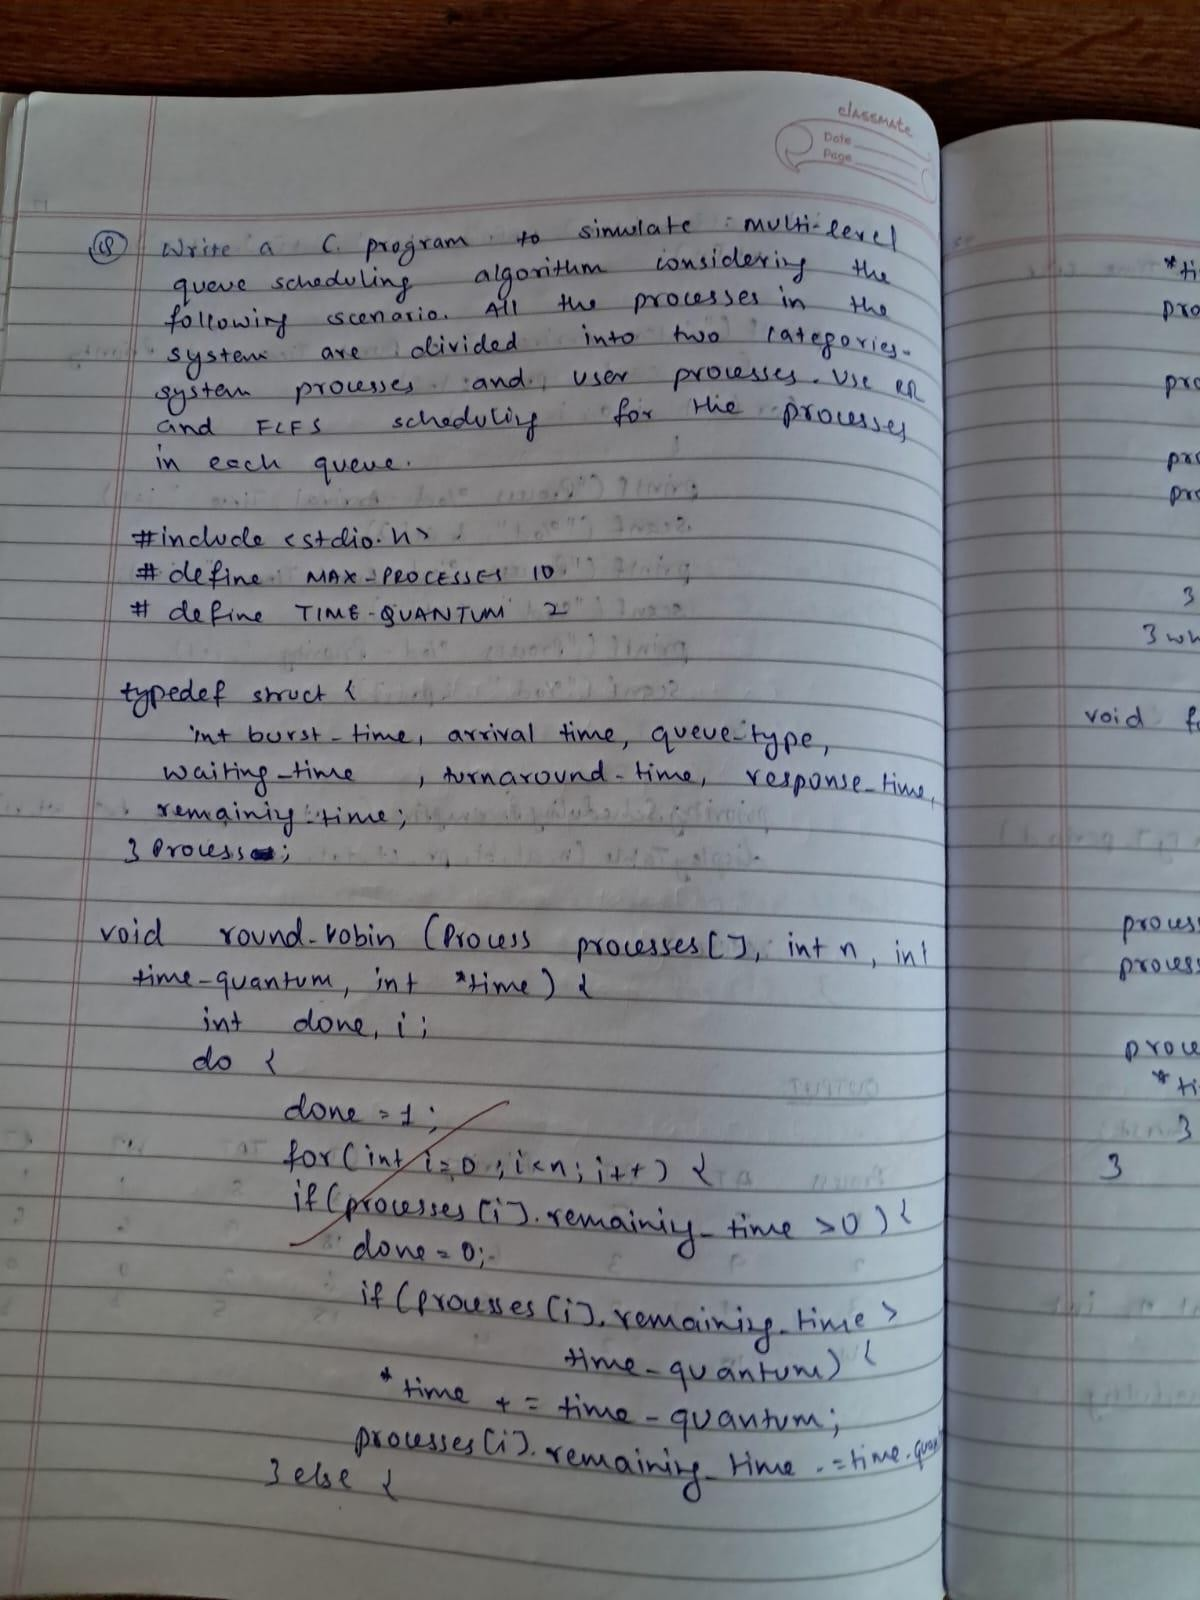 classmate
Date
Page
Q Write a C program to simulate multi-level
queue scheduling algorithm considering the
following scenario. All the processes in the
system are divided into two categories-
system processes and user processes. Use RR
and FCFS scheduling for the processes
in each queue.
#include <stdio.h>
# define MAX-PROCESSES 10
# define TIME-QUANTUM 2
typedef struct {
int burst-time, arrival time, queue-type,
waiting-time , turnaround-time, response-time,
remaining-time;
} Process;
void round-robin (Process processes[], int n, int
time-quantum, int *time) {
int done, i;
do {
done = 1;
for(int i=0; i<n; i++) {
if(processes[i].remaining-time >0) {
done = 0;
if (processes[i].remaining-time >
time-quantum) {
*time += time-quantum;
processes[i].remaining-time -= time-quan
} else {
*ti
pro
pro
pro
pro
}
} wh
void f
process
process
proce
*ti
}
}